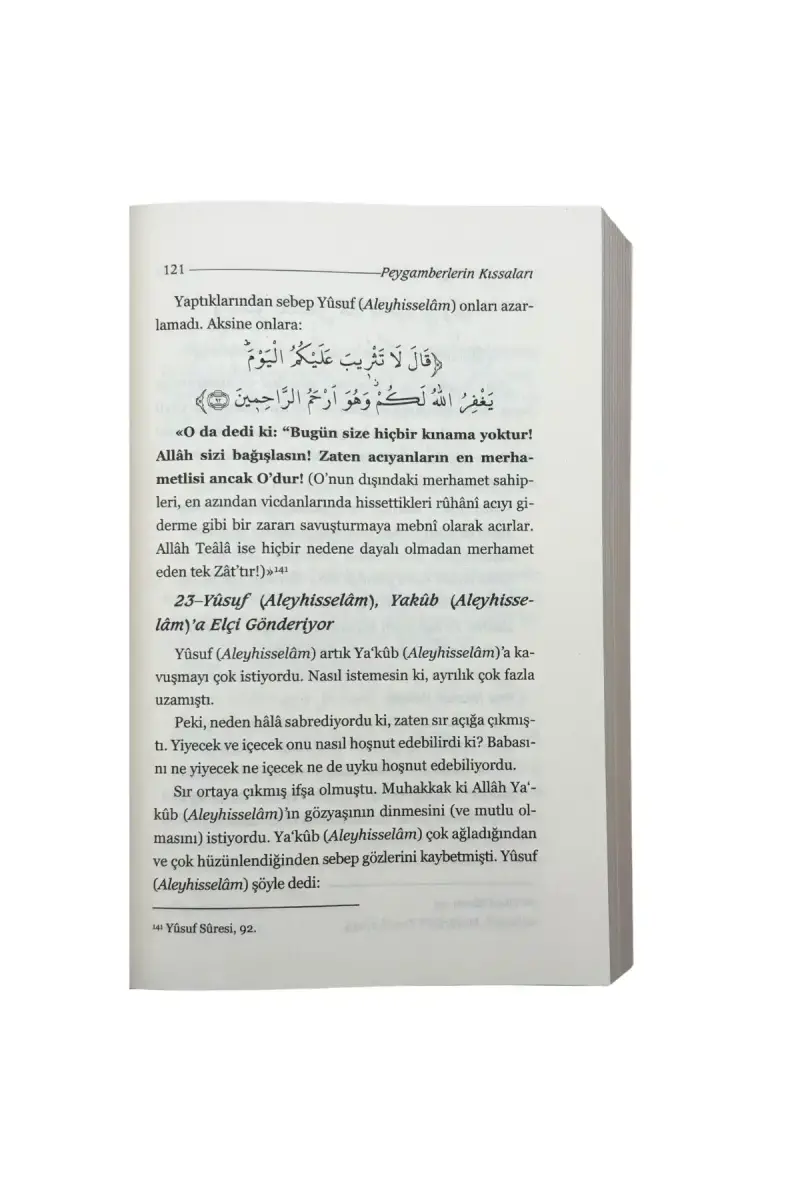 121 Peygamberlerin Kıssaları
Yaptıklarından sebep Yûsuf (Aleyhisselâm) onları azar-
lamadı. Aksine onlara:
﴿قَالَ لَا تَثْرِيبَ عَلَيْكُمُ الْيَوْمَۜ
يَغْفِرُ اللّٰهُ لَكُمْۘ وَهُوَ اَرْحَمُ الرَّاحِمِينَ ﴿٩٢﴾﴾
«O da dedi ki: “Bugün size hiçbir kınama yoktur!
Allâh sizi bağışlasın! Zaten acıyanların en merha-
metlisi ancak O’dur! (O’nun dışındaki merhamet sahip-
leri, en azından vicdanlarında hissettikleri rûhânî acıyı gi-
derme gibi bir zararı savuşturmaya mebnî olarak acırlar.
Allâh Teâlâ ise hiçbir nedene dayalı olmadan merhamet
eden tek Zât’tır!)»¹⁴¹
23–Yûsuf (Aleyhisselâm), Yakûb (Aleyhisse-
lâm)’a Elçi Gönderiyor
Yûsuf (Aleyhisselâm) artık Ya‘kûb (Aleyhisselâm)’a ka-
vuşmayı çok istiyordu. Nasıl istemesin ki, ayrılık çok fazla
uzamıştı.
Peki, neden hâlâ sabrediyordu ki, zaten sır açığa çıkmış-
tı. Yiyecek ve içecek onu nasıl hoşnut edebilirdi ki? Babası-
nı ne yiyecek ne içecek ne de uyku hoşnut edebiliyordu.
Sır ortaya çıkmış ifşa olmuştu. Muhakkak ki Allâh Ya‘-
kûb (Aleyhisselâm)’ın gözyaşının dinmesini (ve mutlu ol-
masını) istiyordu. Ya‘kûb (Aleyhisselâm) çok ağladığından
ve çok hüzünlendiğinden sebep gözlerini kaybetmişti. Yûsuf
(Aleyhisselâm) şöyle dedi:
¹⁴¹ Yûsuf Sûresi, 92.